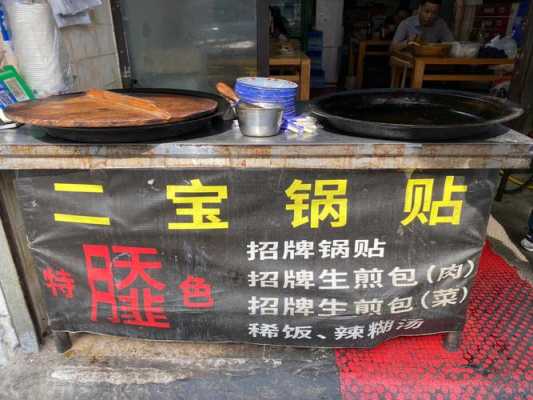 二宝锅贴
特色
招牌锅贴
招牌生煎包(肉)
招牌生煎包(菜)
稀饭、辣糊汤